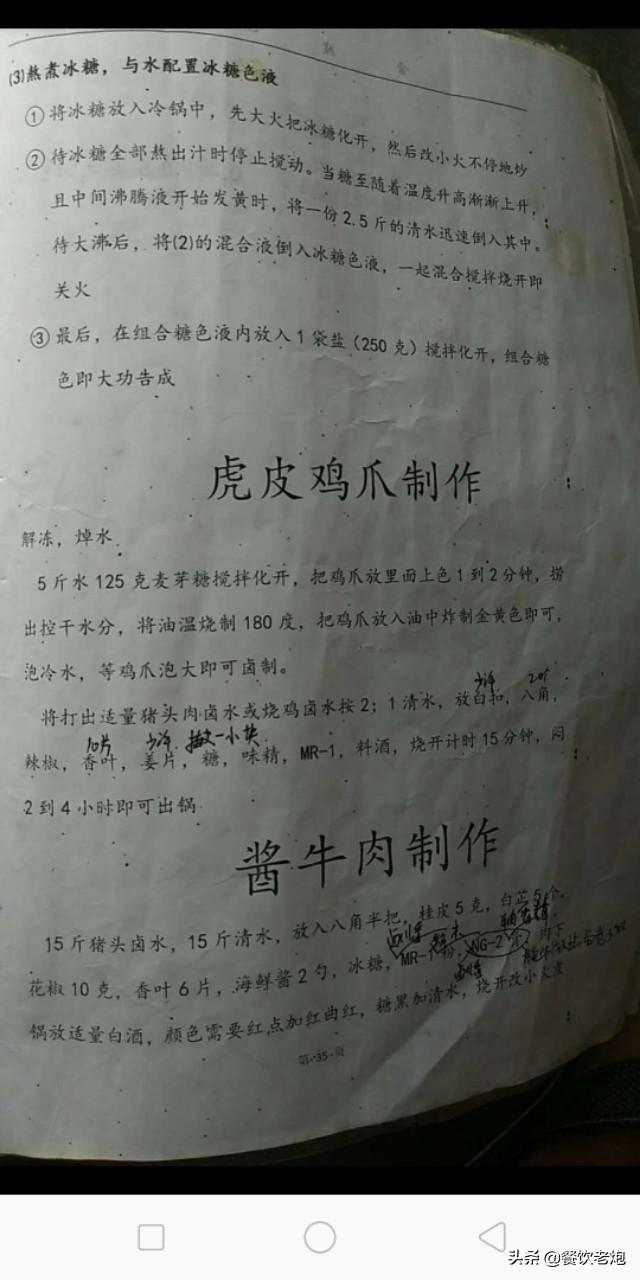 (3)熬煮冰糖，与水配置冰糖色液
①将冰糖放入冷锅中，先大火把冰糖化开，然后改小火不停地炒
②待冰糖全部熬出汁时停止搅动。当糖至随着温度升高渐渐上升，
且中间沸腾液开始发黄时，将一份2.5斤的清水迅速倒入其中。
待大沸后，将(2)的混合液倒入冰糖色液，一起混合搅拌烧开即
关火
③最后，在组合糖色液内放入1袋盐（250克）搅拌化开，组合糖
色即大功告成
虎皮鸡爪制作
解冻，焯水
5斤水125克麦芽糖搅拌化开，把鸡爪放里面上色1到2分钟，捞
出控干水分，将油温烧制180度，把鸡爪放入油中炸制金黄色即可，
泡冷水，等鸡爪泡大即可卤制。
少许 2个
将打出适量猪头肉卤水或烧鸡卤水按2；1清水，放白扣，八角，
10片 少许 一小块
辣椒，香叶，姜片，糖，味精，MR-1，料酒，烧开计时15分钟，闷
2到4小时即可出锅
酱牛肉制作
15斤猪头卤水，15斤清水，放入八角半把，桂皮5克，白芷5个，
花椒10克，香叶6片，海鲜酱2勺，冰糖，MR-1粉，NG-2，肉下
锅放适量白酒，颜色需要红点加红曲红，糖黑加清水，烧开改小火煮
第-35-页
头条 @餐饮老炮